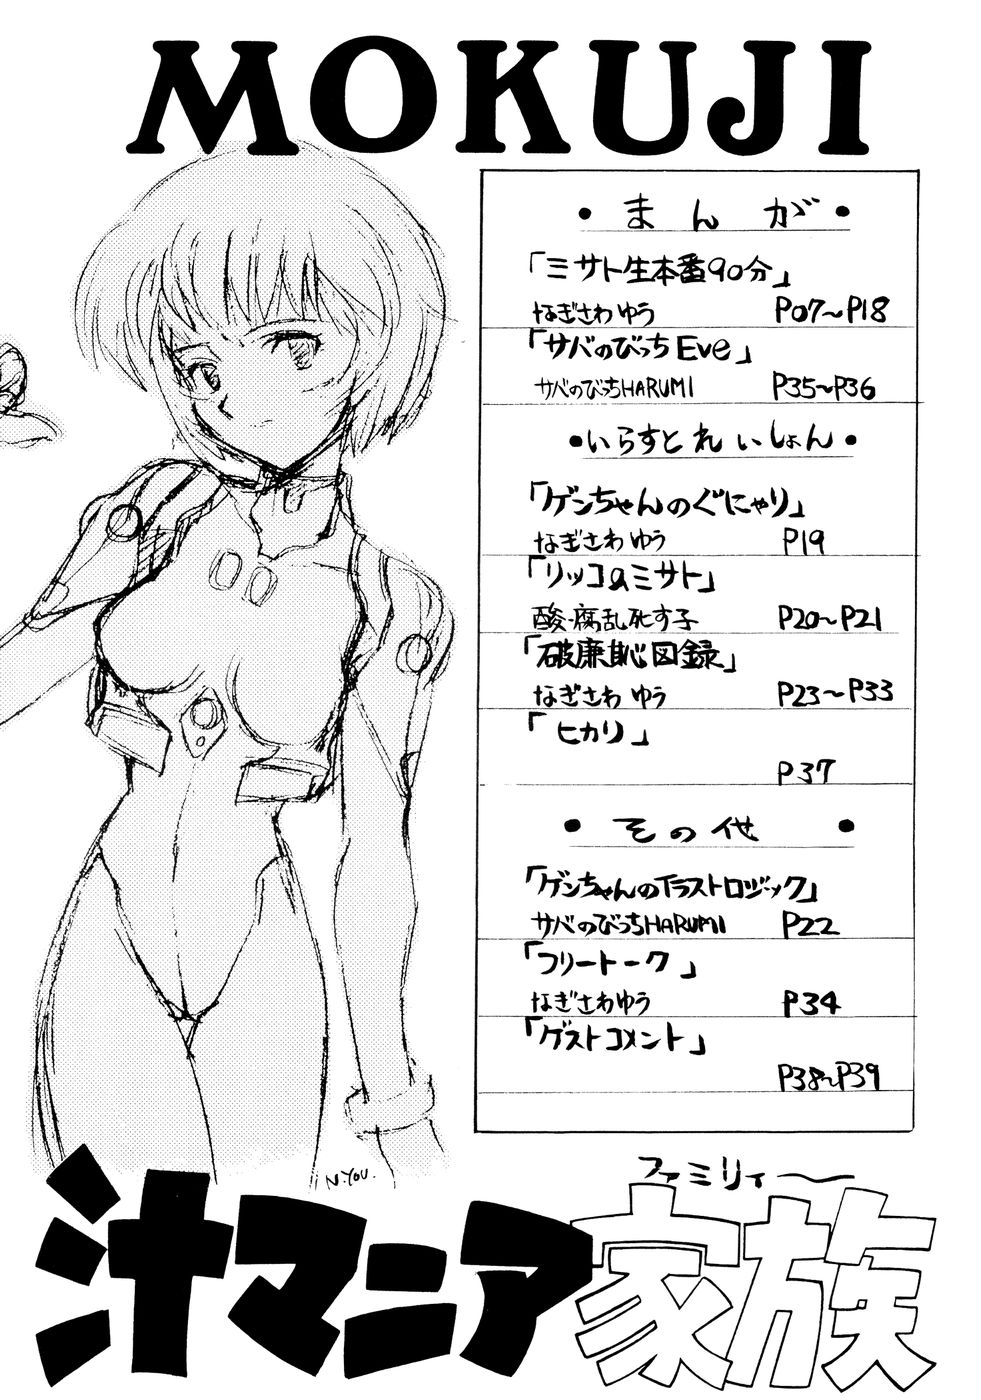 MOKUJI
・まんが・
「ミサト生本番90分」
なぎさわゆう P07〜P18
「サバのびっちEve」
サバのびっちHARUMI P35〜P36
・いらすとれいしょん・
「ゲンちゃんのぐにゃり」
なぎさわゆう P19
「リツコのミサト」
酸・腐乱死す子 P20〜P21
「破廉恥図録」
なぎさわゆう P23〜P33
「ヒカリ」
P37
・その他・
「ゲンちゃんのイラストロジック」
サバのびっちHARUMI P22
「フリートーク」
なぎさわゆう P34
「ゲストコメント」
P38〜P39
N・YOU.
ファミリィ〜
汁マニア家族